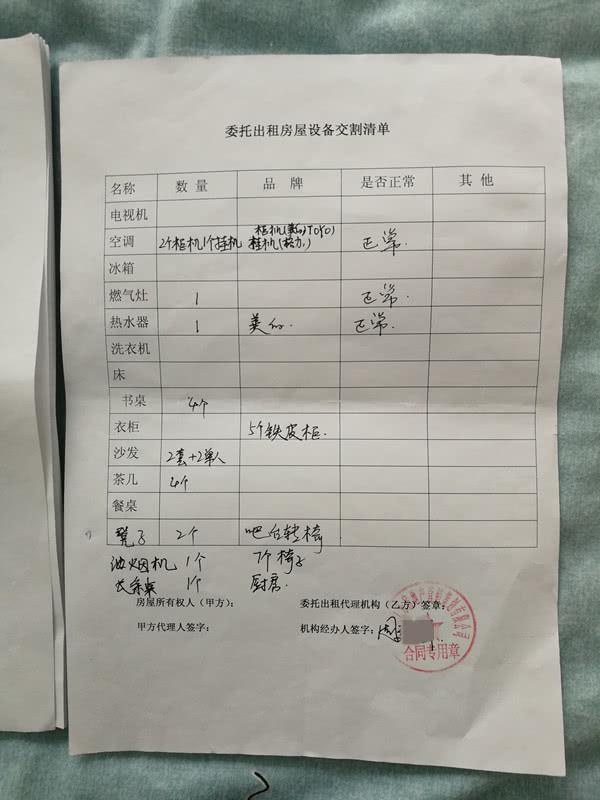 委托出租房屋设备交割清单
名称 数量 品牌 是否正常 其他
电视机
空调 2个柜机1个挂机 柜机(美的)TOYO) 挂机(格力) 正常.
冰箱
燃气灶 1 正常.
热水器 1 美的. 正常.
洗衣机
床
书桌 4个
衣柜 5个铁皮柜.
沙发 2套+2单人
茶几 4个
餐桌
凳子 2个 吧台转椅
油烟机 1个 7个椅子
长条桌 1个 厨房.
房屋所有权人（甲方）： 委托出租代理机构（乙方）签章：
甲方代理人签字： 机构经办人签字： 周
合同专用章